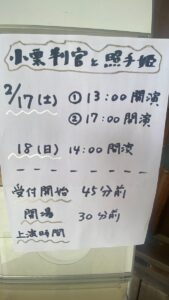 小栗判官と照手姫
2/17(土) ①13:00開演
②17:00開演
18(日) 14:00開演
受付開始 45分前
開場 30分前
上演時間